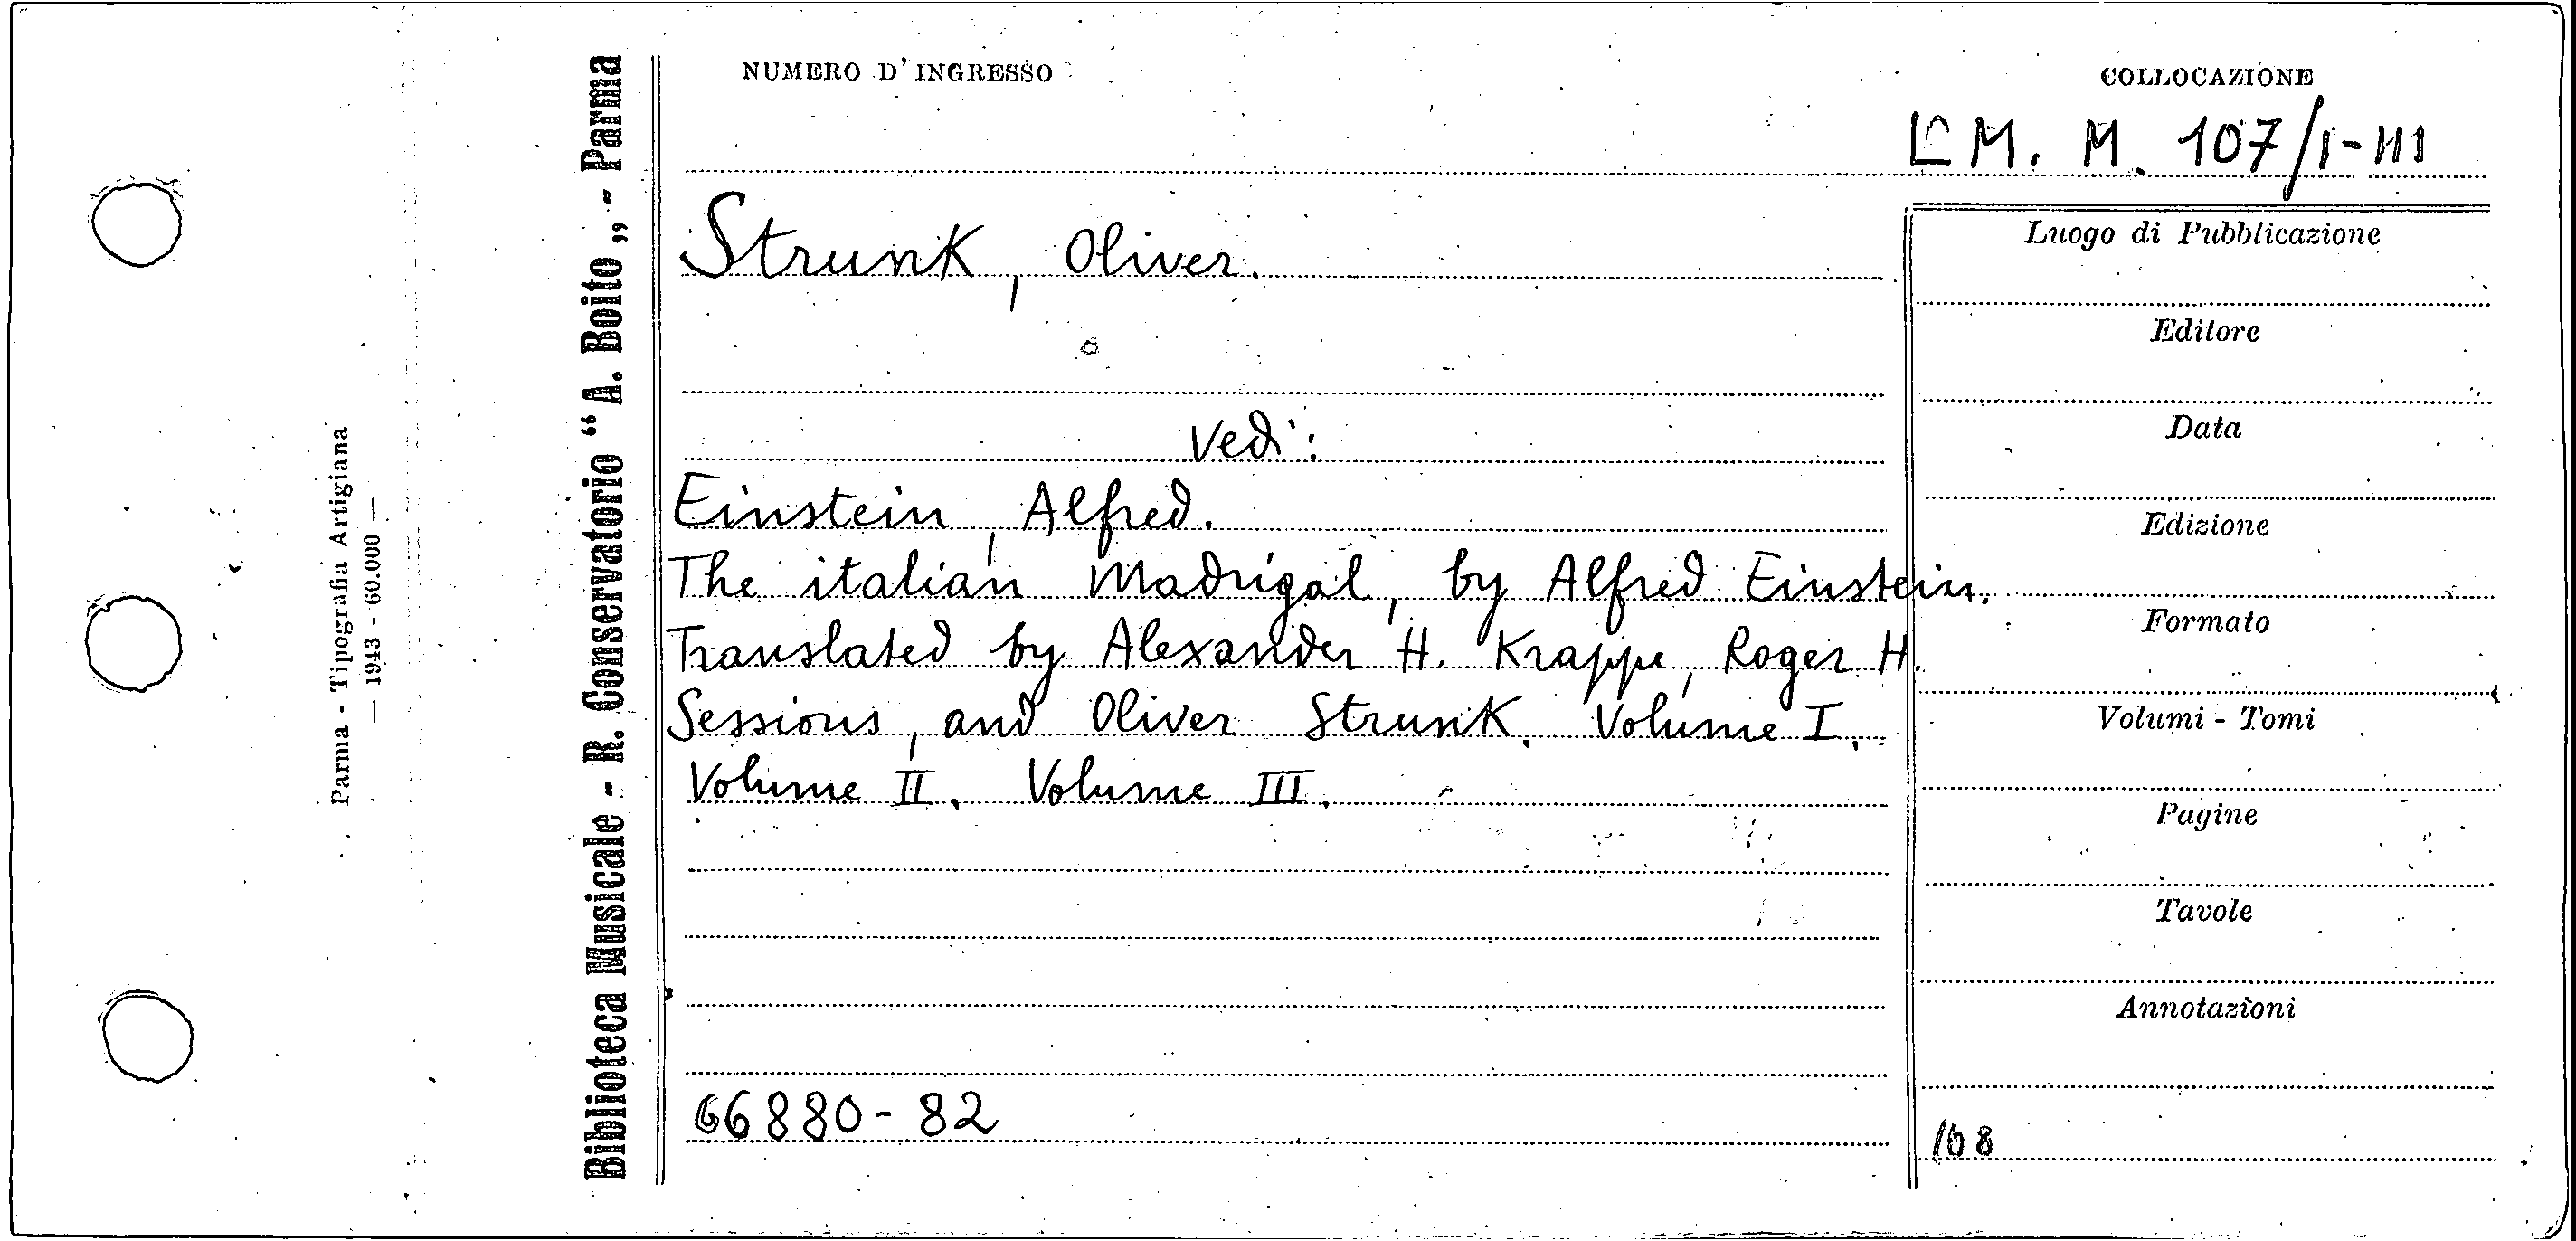 NUMERO D'INGRESSO
COLLOCAZIONE
M. M. 107/I-III
Strunk, Oliver.
Vedi:
Einstein, Alfred.
The italian Madrigal, by Alfred Einstein.
Translated by Alexander H. Krappe, Roger H.
Sessions, and Oliver Strunk. Volume I.
Volume II. Volume III.
66880-82
Luogo di Pubblicazione
Editore
Data
Edizione
Formato
Volumi - Tomi
Pagine
Tavole
Annotazioni
Biblioteca Musicale - R. Conservatorio “A. Boito„ - Parma
Parma - Tipografia Artigiana
— 1943 - 60.000 —